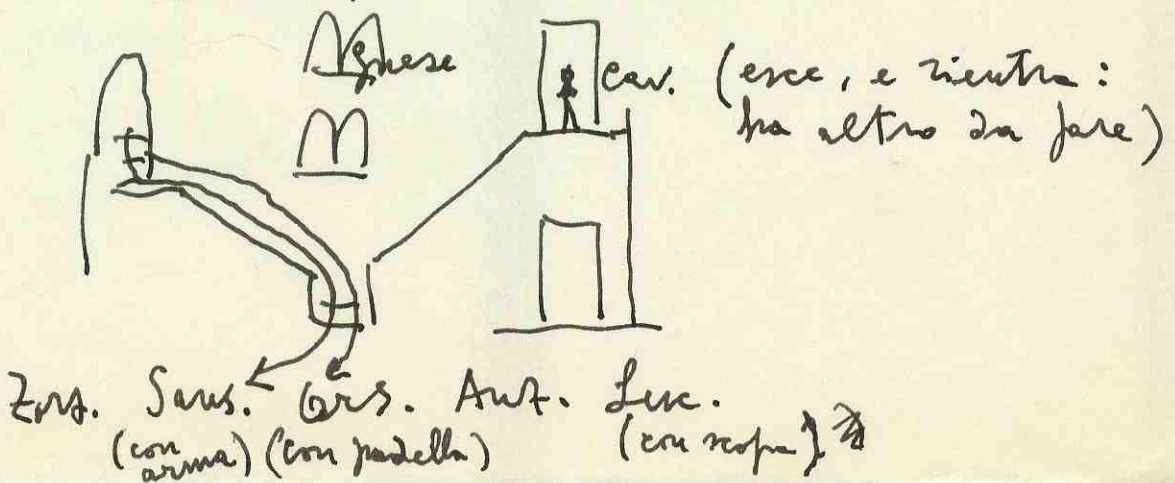 Agnese
Cav. (esce, e rientra:
ha altro da fare)
Zorz. Sans. Ors. Ant. Luc.
(con arma) (con padella) (con scopa)